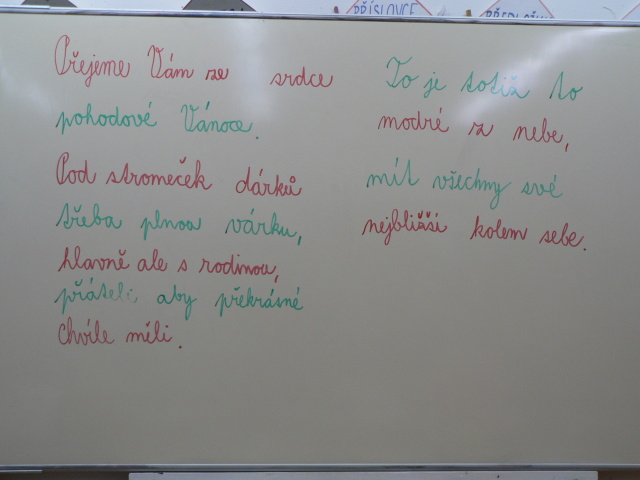 PŘÍSLOVCE
Přejeme Vám ze srdce
pohodové Vánoce.
Pod stromeček dárků
třeba plnou várku,
hlavně ale s rodinou,
přáteli aby překrásné
chvíle měli.
To je totiž to
modré z nebe,
mít všechny své
nejbližší kolem sebe.